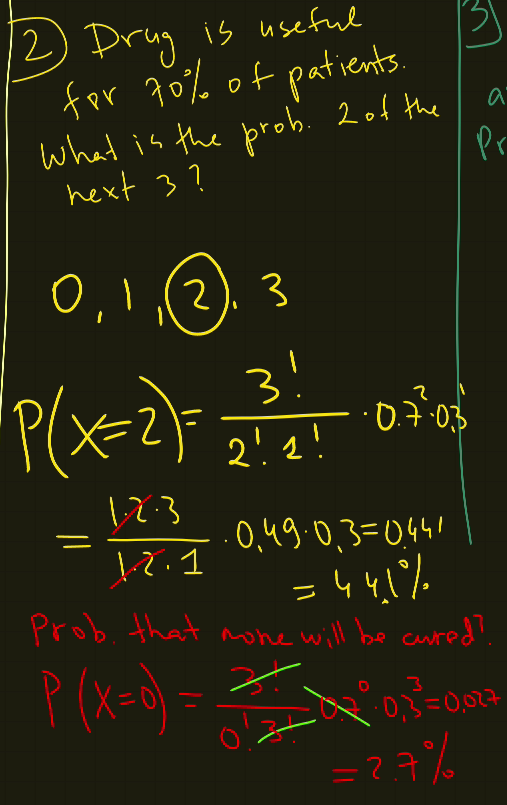 2) Drug is useful
for 70% of patients.
What is the prob. 2 of the
next 3?
0, 1, 2, 3
P(X=2)= 3!/(2!·1!) · 0.7²·0,3¹
= (1·2·3)/(1·2·1) · 0,49·0,3=0,441
= 44,1%
Prob. that none will be cured?
P(X=0) = 3!/(0!·3!) · 0.7⁰·0,3³=0,027
= 2.7%
3)
a
Pr